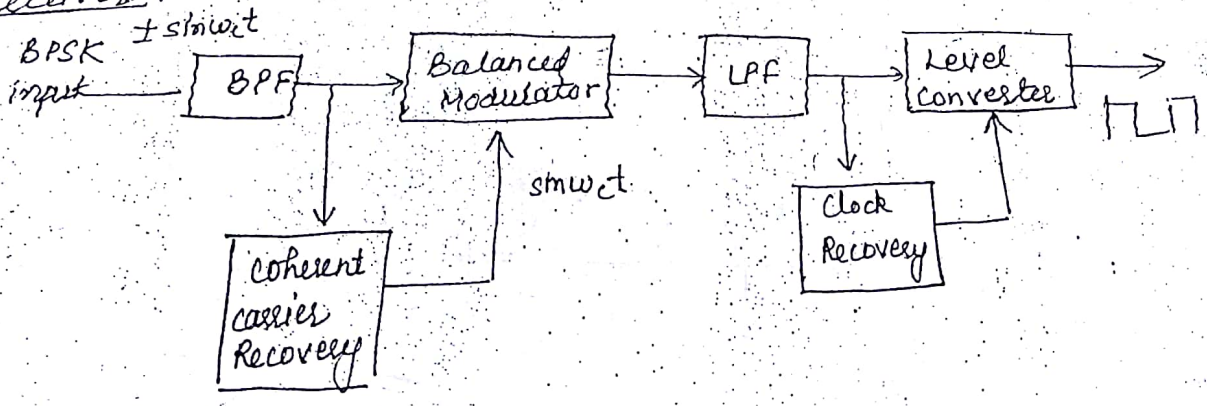 BPSK ± sinωct
input
BPF
Balanced
Modulator
LPF
Level
Converter
sinωct
Clock
Recovery
Coherent
carrier
Recovery